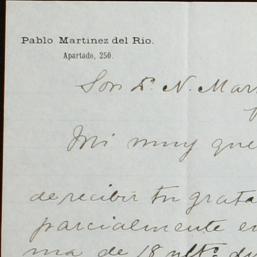 Pablo Martinez del Rio.
Apartado, 250.
Sor. D. N. Mar
Mi muy que
de recibir tu grata
parcialmente en
ma de 18 ulto. du